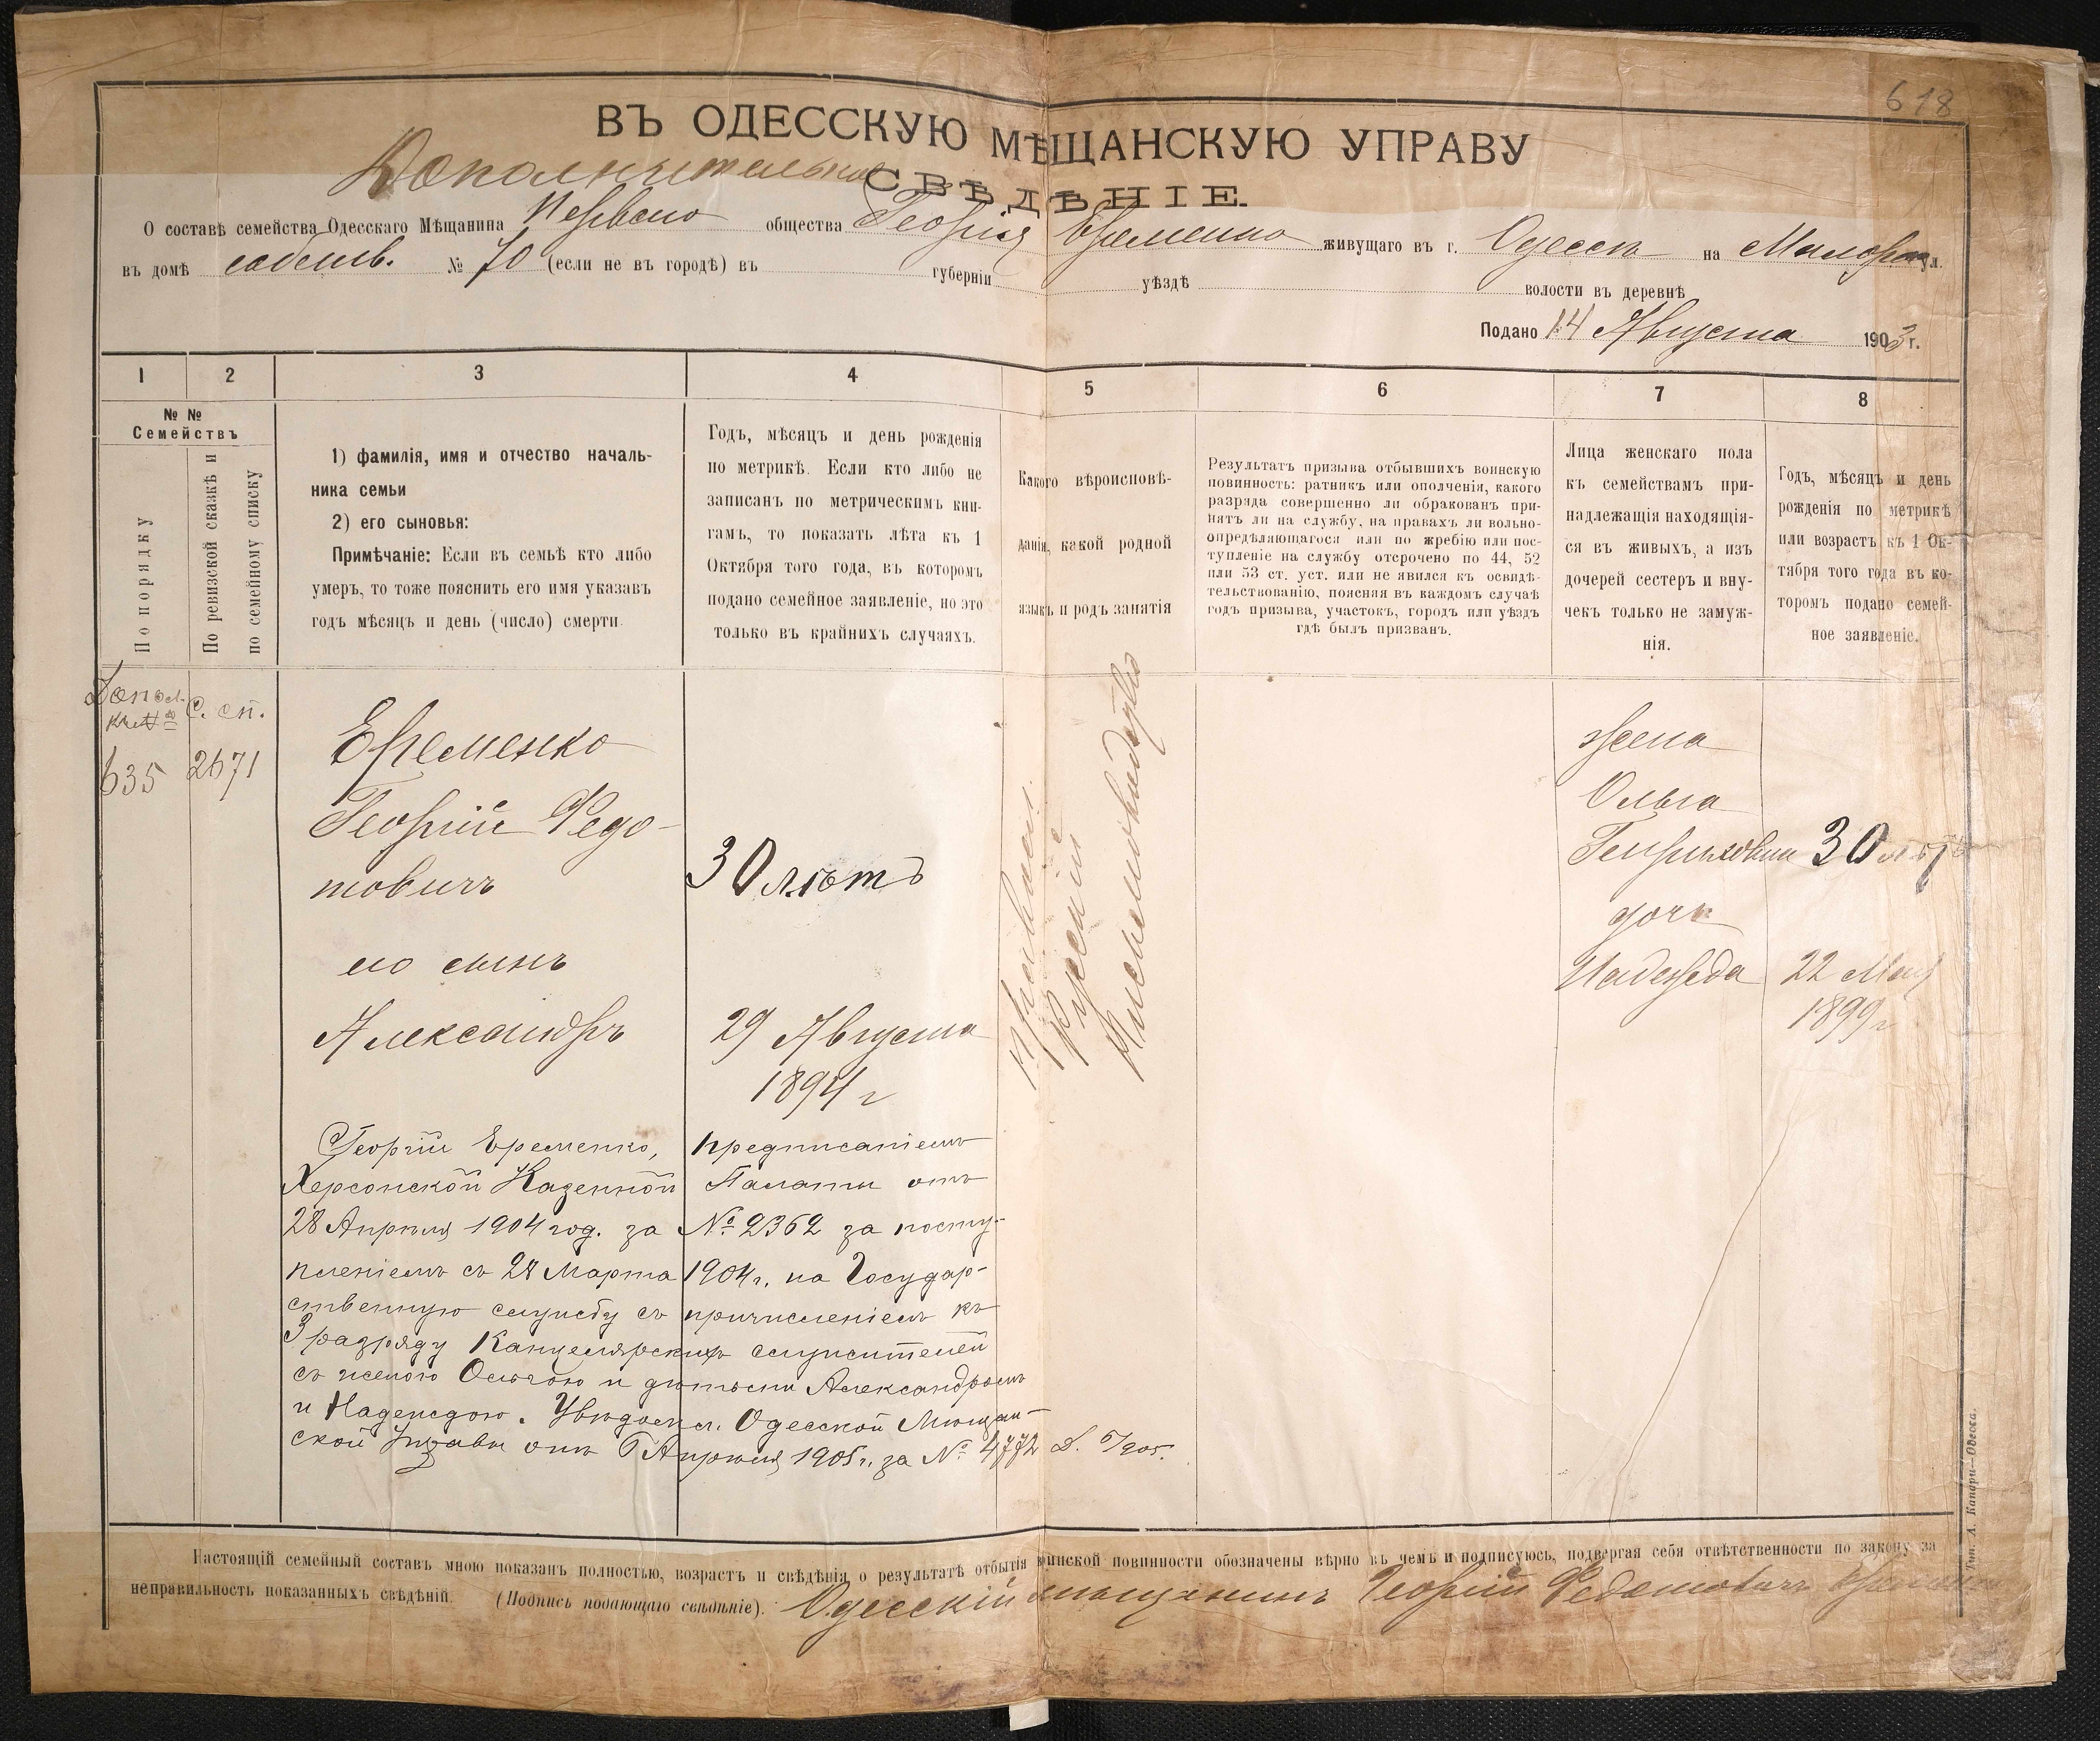 618
ВЪ ОДЕССКУЮ МѢЩАНСКУЮ УПРАВУ
Дополнительное СВѢДѢНІЕ.
О составѣ семейства Одесскаго Мѣщанина Перваго общества Георгія Еременко живущаго въ г. Одессѣ на ул.
въ домѣ собств. № 70 (если не въ городѣ) въ губерніи уѣздѣ волости въ деревнѣ
Подано 14 Августа 1903 г.
1 2 3 4 5 6 7 8
№ №
Семействъ
По порядку
По ревизской сказкѣ и
по семейному списку
1) фамилія, имя и отчество началь-
ника семьи
2) его сыновья:
Примѣчаніе: Если въ семьѣ кто либо
умеръ, то тоже пояснить его имя указавъ
годъ мѣсяцъ и день (число) смерти.
Годъ, мѣсяцъ и день рожденія
по метрикѣ. Если кто либо не
записанъ по метрическимъ кни-
гамъ, то показать лѣта къ 1
Октября того года, въ которомъ
подано семейное заявленіе, но это
только въ крайнихъ случаяхъ.
Какого вѣроисповѣ-
данія, какой родной
языкъ и родъ занятія
Результатъ призыва отбывшихъ воинскую
повинность: ратникъ или ополченія, какого
разряда совершенно ли обракованъ при-
нятъ ли на службу, на правахъ ли вольно-
опредѣляющагося или по жребію или пос-
тупленіе на службу отсрочено по 44, 52
или 53 ст. уст. или не явился къ освидѣ-
тельствованію, поясняя въ каждомъ случаѣ
годъ призыва, участокъ, городъ или уѣздъ
гдѣ былъ призванъ.
Лица женскаго пола
къ семействамъ при-
надлежащія находящія-
ся въ живыхъ, а изъ
дочерей сестеръ и вну-
чекъ только не замуж-
нія.
Годъ, мѣсяцъ и день
рожденія по метрикѣ
или возрастъ къ 1 Ок-
тября того года въ ко-
торомъ подано семей-
ное заявленіе.
Допол.
къ №
635
С. сп.
2671
Еременко
Георгій Федо-
товичъ
30 лѣтъ
его сынъ
Александръ
29 Августа
1894 г
Православн.
Русскій
Письмоводство
жена
Ольга
Генриховна 30 лѣтъ
дочь
Надежда
22 Мая
1899 г
Георгій Еременко, предписаніемъ
Херсонской Казенной Палаты отъ
28 Апрѣля 1904 год. за № 2362 за посту-
пленіемъ съ 24 Марта 1904 г. на Государ-
ственную службу съ причисленіемъ къ
3 разряду Канцелярскихъ служителей
съ женою Ольгою и дѣтьми Александромъ
и Надеждою. Увѣдомл. Одесской Мѣщан-
ской Управы отъ 6 Апрѣля 1905 г. за № 4772
Настоящій семейный составъ мною показанъ полностью, возрастъ и свѣдѣнія о результатѣ отбытія воинской повинности обозначены вѣрно въ чемъ и подписуюсь, подвергая себя отвѣтственности по закону за
неправильность показанныхъ свѣдѣній. (Подпись подающаго свѣдѣніе). Одесскій мѣщанинъ Георгій Федотовичъ Еременко
Тип. А. Капари—Одесса.